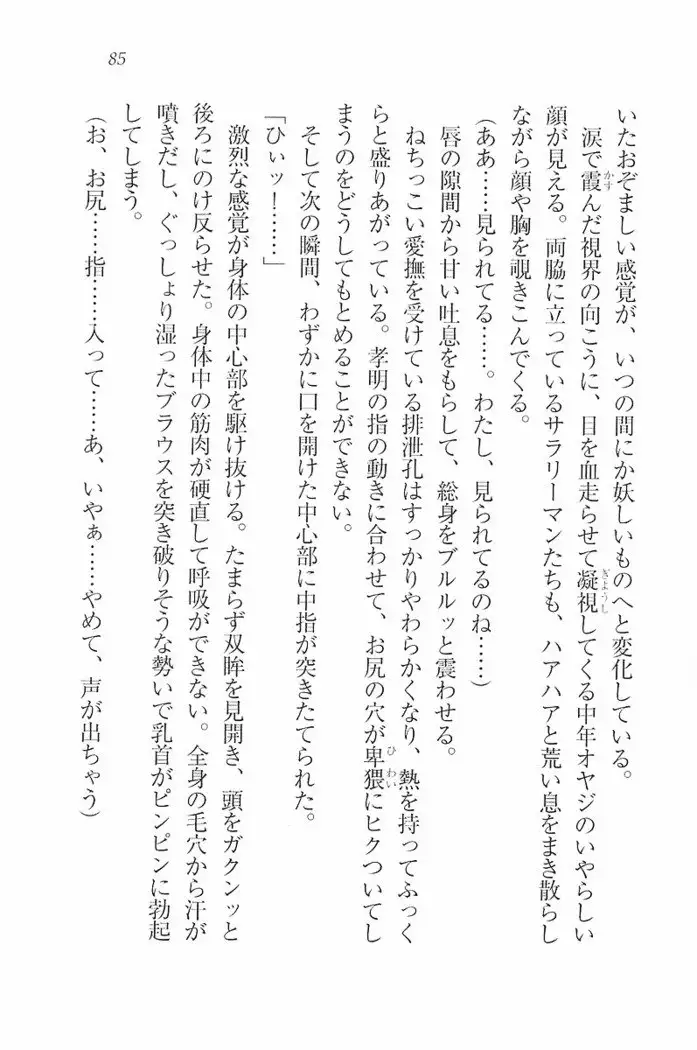 85
いたおぞましい感覚が、いつの間にか妖しいものへと変化している。
涙で霞んだ視界の向こうに、目を血走らせて凝視してくる中年オヤジのいやらしい
顔が見える。両脇に立っているサラリーマンたちも、ハアハアと荒い息をまき散らし
ながら顔や胸を覗きこんでくる。
(ああ……見られてる……。わたし、見られてるのね……)
唇の隙間から甘い吐息をもらして、総身をブルルッと震わせる。
ねちっこい愛撫を受けている排泄孔はすっかりやわらかくなり、熱を持ってふっく
らと盛りあがっている。孝明の指の動きに合わせて、お尻の穴が卑猥にヒクついてし
まうのをどうしてもとめることができない。
そして次の瞬間、わずかに口を開けた中心部に中指が突きたてられた。
「ひぃッ！……」
激烈な感覚が身体の中心部を駆け抜ける。たまらず双眸を見開き、頭をガクンッと
後ろにのけ反らせた。身体中の筋肉が硬直して呼吸ができない。全身の毛穴から汗が
噴きだし、ぐっしょり湿ったブラウスを突き破りそうな勢いで乳首がピンピンに勃起
してしまう。
(お、お尻……指……入って……あ、いやぁ……やめて、声が出ちゃう)